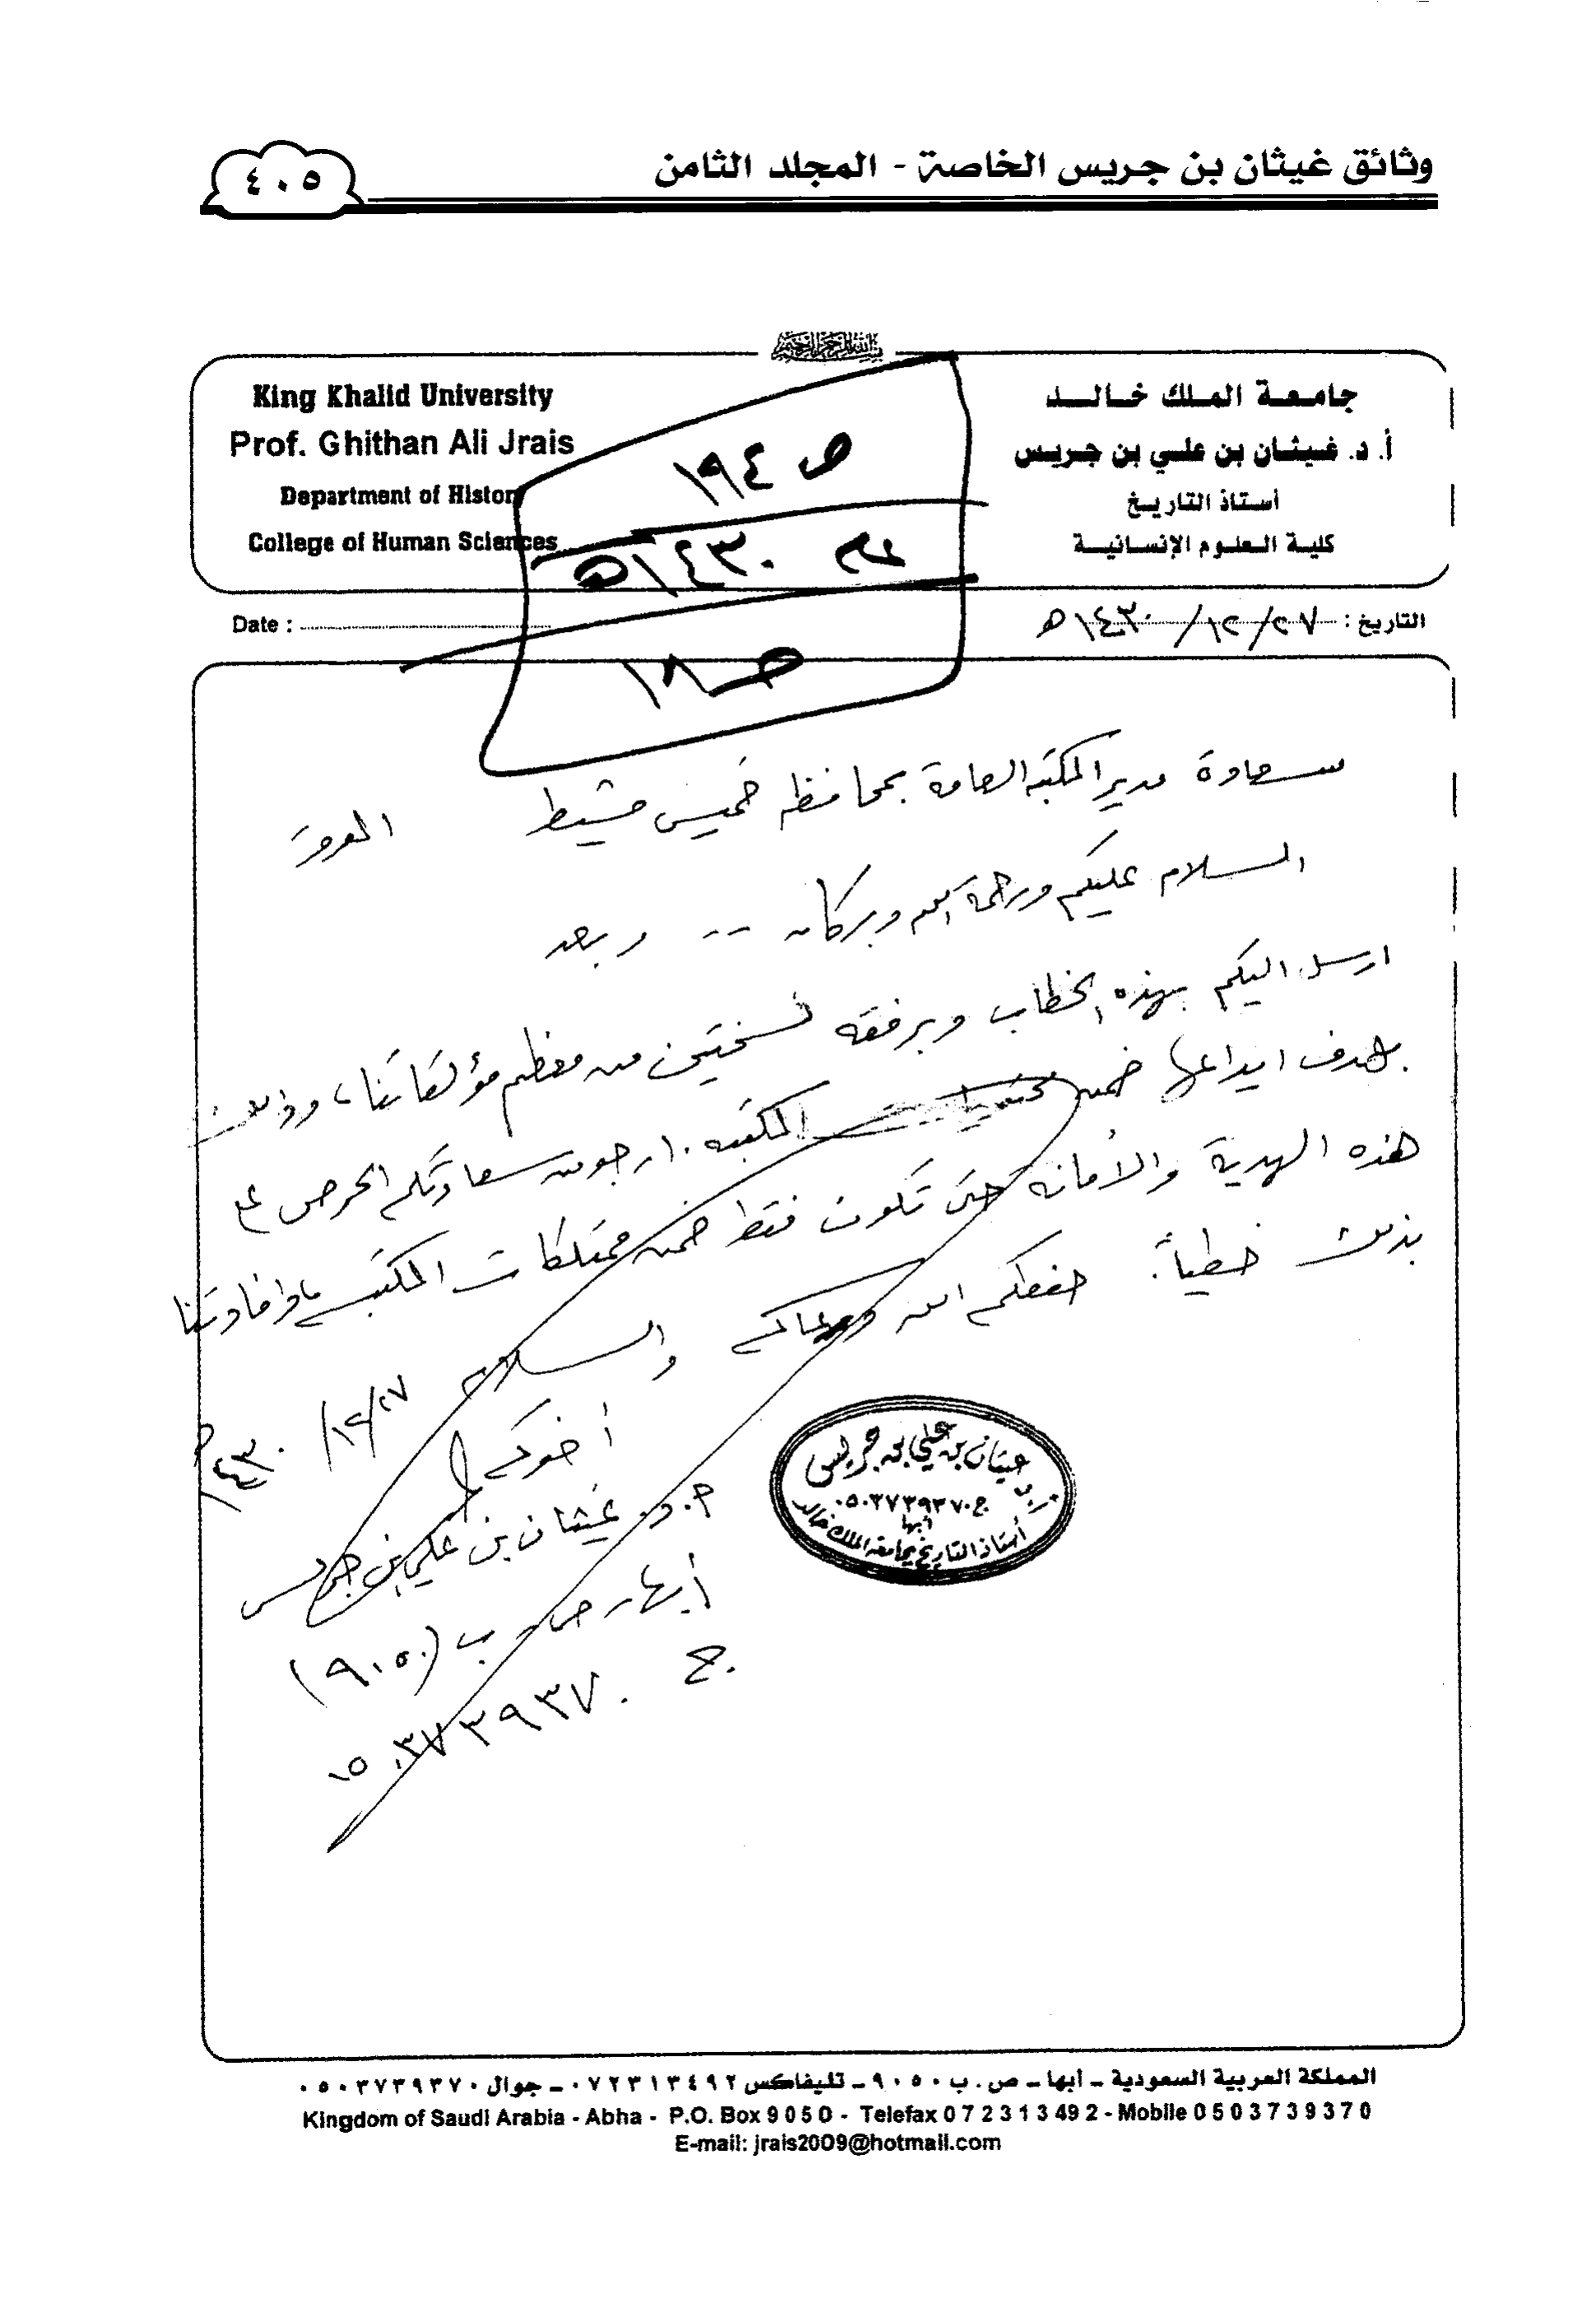 وثائق غيثان بن جريس الخاصة - المجلد الثامن
٤٠٥
جامعة الملك خالد
أ. د. غيثان بن علي بن جريس
أستاذ التاريخ
كلية العلوم الإنسانية
King Khalid University
Prof. Ghithan Ali Jrais
Department of History
College of Human Sciences
ص ١٩٤
عام ١٤٣٠هـ
ص ١٨
التاريخ : ٢٧/ ١٢/ ١٤٣٠هـ
Date :
سعادة مدير المكتبة العامة بمحافظة خميس مشيط الموقر
السلام عليكم ورحمة الله وبركاته -- وبعد
ارسل اليكم بهذه الخطاب وبرفقه نسختين من معظم مؤلفاتنا، وذلك
بهدف ايداعها ضمن المكتبه . ارجو من سعادتكم الحرص على
هذه الهدية والأمانه حتى تكون فقط ضمن ممتلكات المكتبه، وافادتنا
بذلك خطياً. حفظكم الله ورعاكم والسلام ٢٧/ ١٢/ ١٤٣٠هـ
أخوكم
أ.د. غيثان بن علي بن جريس
أبها - ص. ب (٩٠٥٠)
ج ٠٥٠٣٧٣٩٣٧٠
أ.د غيثان بن علي بن جريس
ج.٠٥٠٣٧٣٩٣٧٠
أبها
أستاذ التاريخ بجامعة الملك خالد
المملكة العربية السعودية – أبها – ص. ب ٩٠٥٠ – تليفاكس ٠٧٢٣١٣٤٩٢ – جوال ٠٥٠٣٧٣٩٣٧٠
Kingdom of Saudi Arabia - Abha - P.O. Box 9 0 5 0 - Telefax 0 7 2 3 1 3 49 2 - Mobile 0 5 0 3 7 3 9 3 7 0
E-mail: jrais2009@hotmail.com